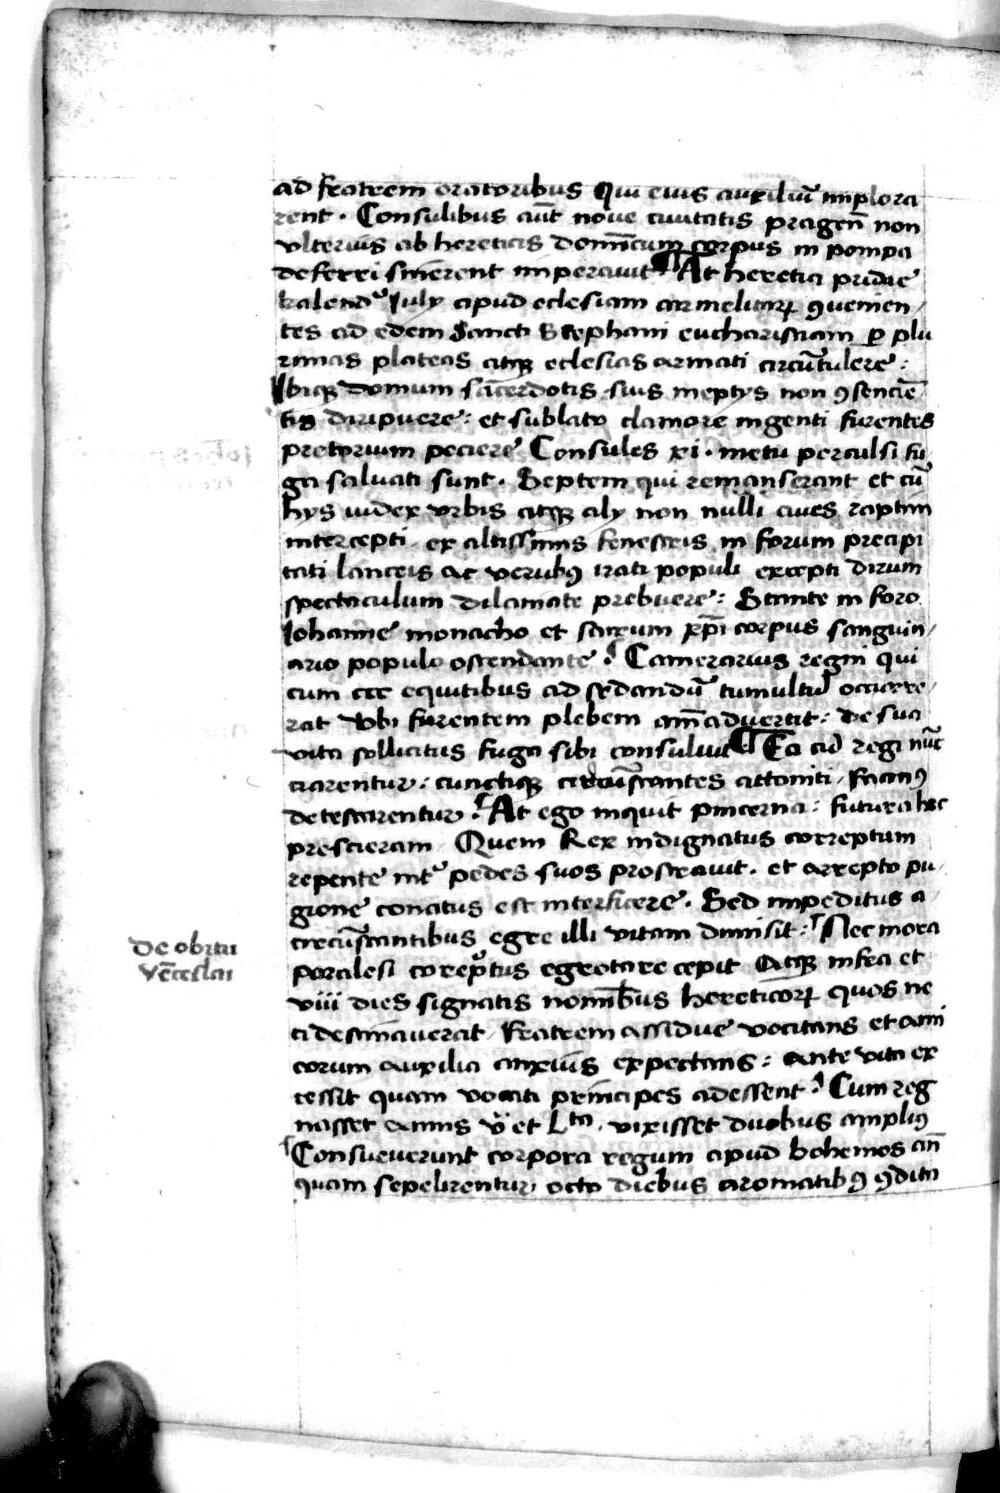 ad fratrem oratoribus Qui eius auxiliū implora
rent . Consulibus aūt noue ciuitatis pragen̄ non
vlterius ab hereticis dominicum corpus in pompa
deferri sinerent imperauit ¶ At heretici pridie
kalend᷒ July apud eclesiam carmelitaꝝ ꝯuenien/
tes ad edem Sancti Stephani eucharistiam ꝑ plu
rimas plateas atqꝫ eclesias armati circūtulere :
Ibiqꝫ domum sacerdotis suis ineptys non ꝯsencıē
tis diripuere : et sublato clamore ingenti furentes
pretorium peciere Consules xi . metu perculsi fu
ga saluati sunt . Septem qui remanserant et cū
hys iudex vrbis atqꝫ aly non nulli ciues raptim
intercepti ex altissimis fenestris in forum precipi
tati lanceis ac verubꝰ irati populi excepti dirum
spectaculum dilaniate prebuere : Stante in foro
Iohanne monacho et sacrum xp̄i corpus sanguin/
ario populo ostendante . Camerarius regni qui
cum ccc equitibus ad sedandū tumultū occurre/
rat vbi furentem plebem aīaduertit : de sua
vita sollicitus fuga sibi consuluit ¶ Ea cū regi nūc
ciarentur : cunctiqꝫ circūstantes attoniti / facinꝰ
detestarentur . At ego inquit pincerna : futura hec
prescieram Quem Rex indignatus correptum
repente int᷒ pedes suos prostrauit . et arrepto pu/
gione conatus est interficere . Sed impeditus a
circūstantibus egre illi vitam dimisit : Nec mora
paralesi coreptus egrotare cepit Atqꝫ infra et
viii dies signatis nominibus hereticoꝝ quos ne
ci destinauerat / fratrem assidue vocitans et ami
corum auxilia anxius expectans : ante vita ex
cessit quam vocati principes adessent . Cum reg
nasset annis v et Lta . vixisset duobus ampliꝰ
Consueuerunt corpora regum apud bohemos an̄
quam sepelirentur octo diebus aromatibꝰ ꝯdita
De obitu
Vēceslai